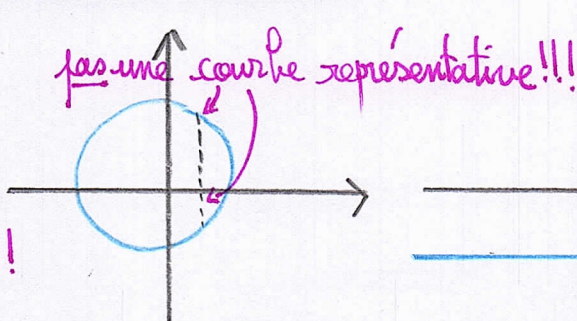 pas une courbe représentative!!!
!